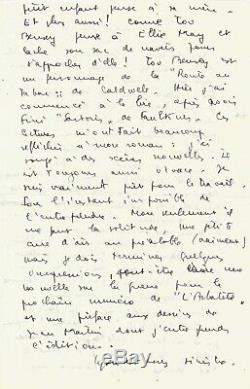 petit enfant pense à sa mère.
Et plus aussi ! comme Lov
Bensey pense à Ellie May et
lâche son sac de navets pour
s'approcher d'elle ! Lov Bensey est
un personnage de la "Route au
tabac" de Caldwell. Hier j'ai
commencé à le lire, après avoir
fini "Sartoris" de Faulkner. Ces
lectures m'ont fait beaucoup
réfléchir à mon roman : j'ai
songé à des scènes nouvelles. Il
est toujours aussi vivace. Je
suis vraiment prêt pour le travail.
Pour l'instant impossible de
l'entreprendre. Non seulement il
me faut la solitude, une petite
cure d'air au préalable
mais je dois terminer quelques
peut-être écrire une
nouvelle sur la pierre pour le
prochain numéro de "L'Arbalète"
et une préface aux dessins de
Jean Martin dont j'entreprends
l'édition.